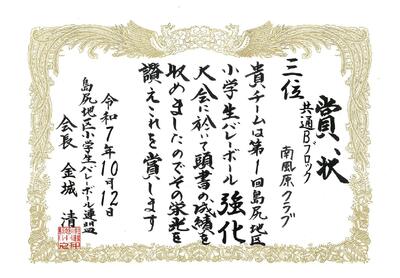 賞状
三位
共通Bブロック
南風原クラブ
貴チームは第1回島尻地区
小学生バレーボール強化
大会に於いて頭書の成績を
収めましたのでその栄光を
讃えこれを賞します
令和7年10月12日
島尻地区小学生バレーボール連盟
会長 金城 清